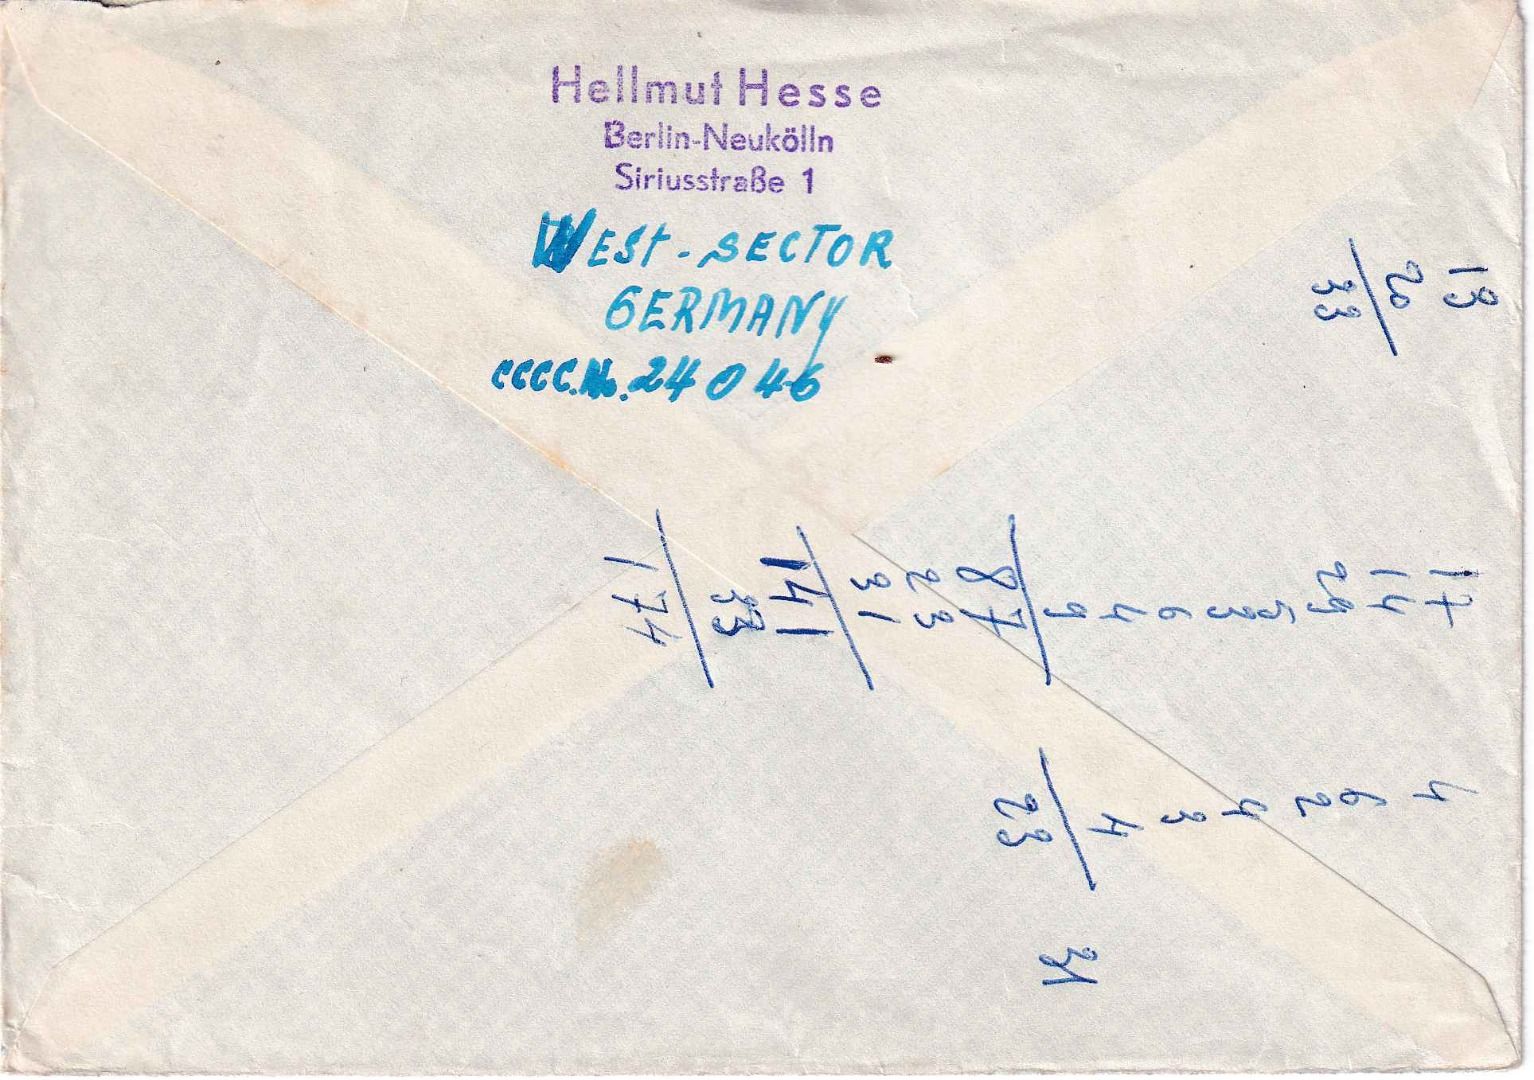 Hellmut Hesse
Berlin-Neukölln
Siriusstraße 1
WEST-SECTOR
GERMANY
CCCC.No. 24046
13
20
33
17
14
4
9
87
23
31
141
33
174
4
6
2
4
3
4
23
31